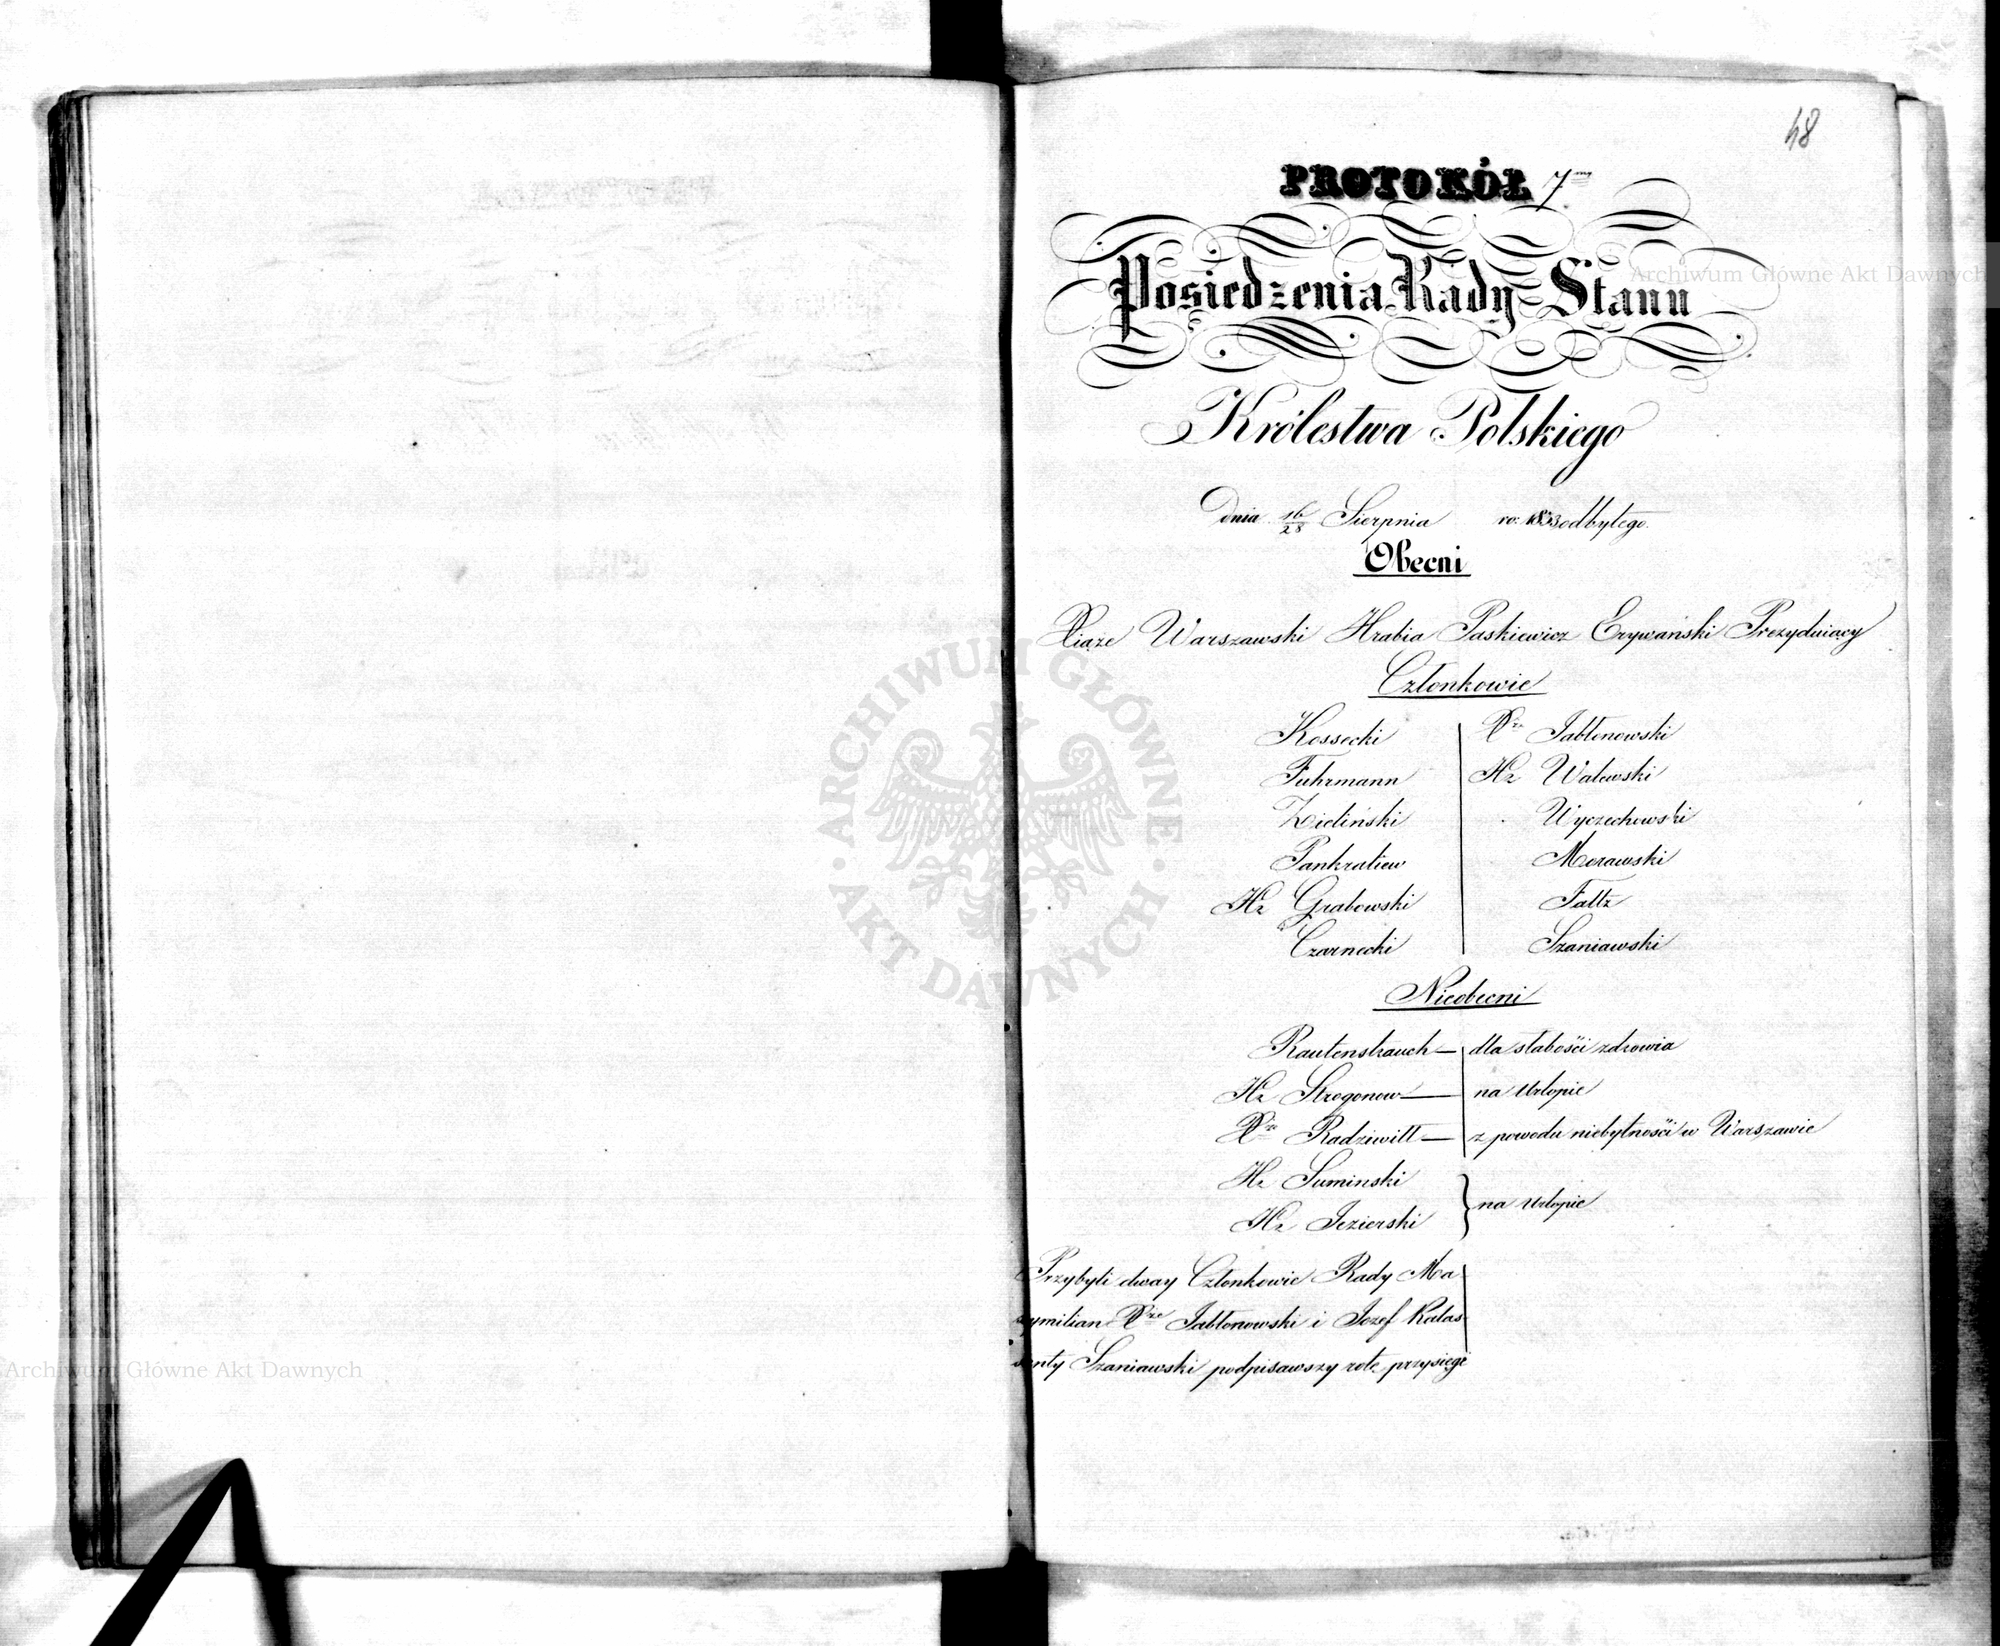 48
PROTOKÓŁ 7my
Posiedzenia Rady Stanu
Królestwa Polskiego
dnia 16/28 Sierpnia ro: 1833 odbytego.
Obecni
Xiąże Warszawski Hrabia Paskiewicz Erywański Prezyduiący
Członkowie
Kossecki
Fuhrmann
Zieliński
Pankratiew
Hr Grabowski
Czarnecki
Xże Jabłonowski
Hr Walewski
Wyczechowski
Morawski
Faltz
Szaniawski
Nieobecni
Rautenstrauch — dla słabości zdrowia
Hr Strogonow — na Urlopie
Xże Radziwiłł — z powodu niebytności w Warszawie
Hr Suminski
Hr Jezierski
na Urlopie
Przybyli dway Członkowie Rady Ma
xymilian Xże Jabłonowski i Jozef Kalas
santy Szaniawski podpisawszy rotę przysięgi
Archiwum Główne Akt Dawnych
Archiwum Główne Akt Dawnych
ARCHIWUM GŁÓWNE
AKT DAWNYCH